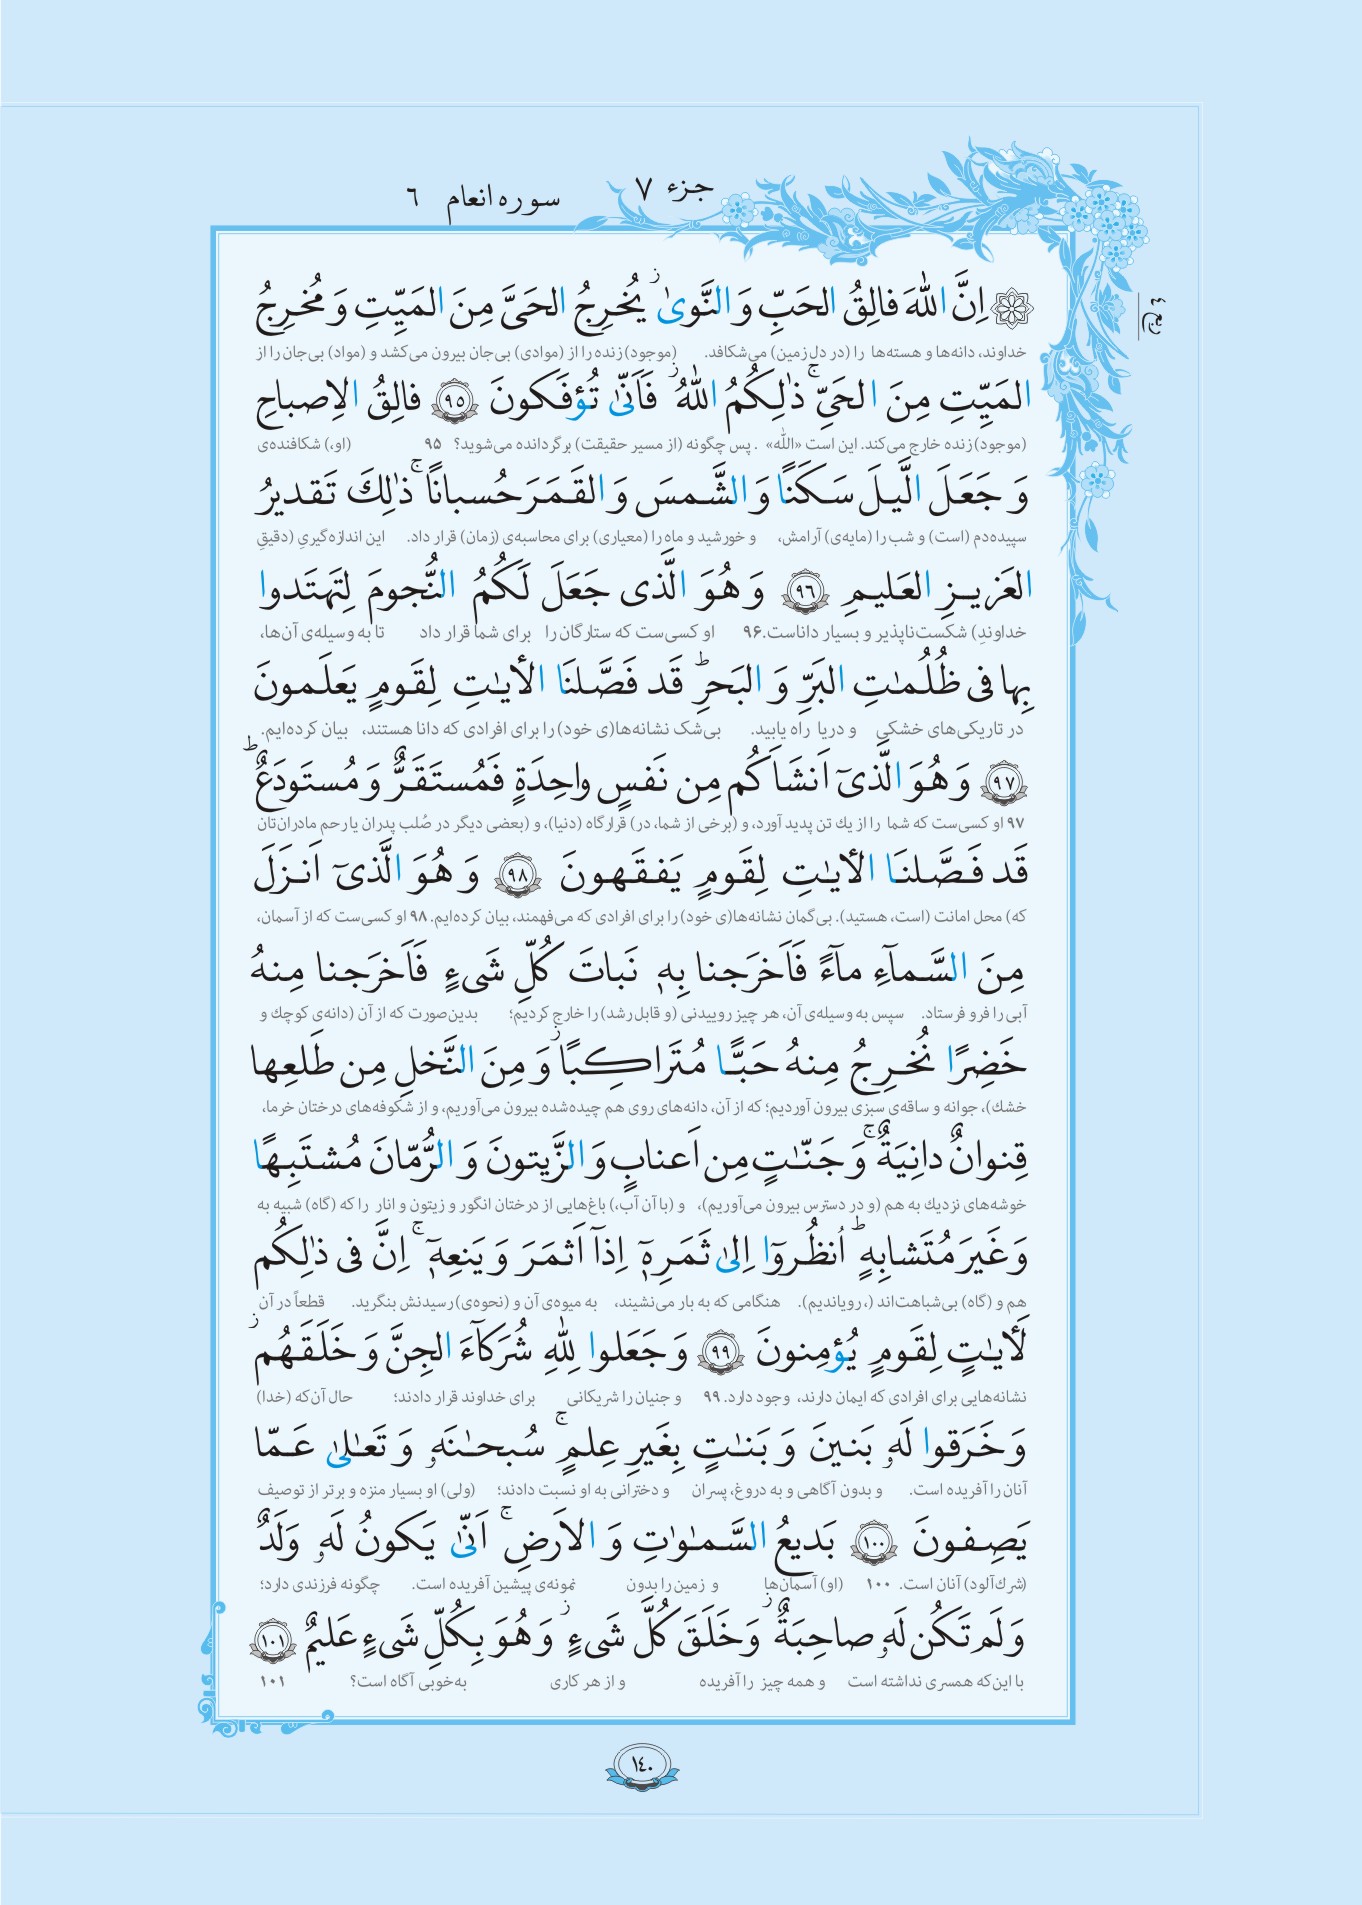 جزء ٧
سوره انعام ٦
ربع ٤
اِنَّ اللّٰهَ فالِقُ الحَبِّ وَ النَّوىٰ ۖز يُخرِجُ الحَىَّ مِنَ المَيِّتِ وَ مُخرِجُ
خداوند، دانه‌ها و هسته‌ها را (در دل زمین) می‌شکافد. (موجود) زنده را از (موادی) بی‌جان بیرون می‌کشد و (مواد) بی‌جان را از
المَيِّتِ مِنَ الحَىِّ ۚ ذٰلِكُمُ اللّٰهُ ز فَاَنّىٰ تُؤفَكونَ ٩٥ فالِقُ الاِصباحِ
(موجود) زنده خارج می‌کند. این است «اللّٰه» . پس چگونه (از مسیر حقیقت) برگردانده می‌شوید؟ ۹۵ (او،) شکافنده‌ی
وَ جَعَلَ الَّيلَ سَكَنًا وَ الشَّمسَ وَ القَمَرَ حُسبانًا ۚ ذٰلِكَ تَقديرُ
سپیده‌دم (است) و شب را (مایه‌ی) آرامش، و خورشید و ماه را (معیاری) برای محاسبه‌ی (زمان) قرار داد. این اندازه‌گیریِ (دقیقِ
العَزيزِ العَليمِ ٩٦ وَ هُوَ الَّذى جَعَلَ لَكُمُ النُّجومَ لِتَهتَدوا
خداوندِ) شکست‌ناپذیر و بسیار داناست. ۹۶ او کسی‌ست که ستارگان را برای شما قرار داد تا به وسیله‌ی آن‌ها،
بِها فى ظُلُمٰتِ البَرِّ وَ البَحرِ ط قَد فَصَّلنَا الأيٰتِ لِقَومٍ يَعلَمونَ
در تاریکی‌های خشکی و دریا راه یابید. بی‌شک نشانه‌ها(ی خود) را برای افرادی که دانا هستند، بیان کرده‌ایم.
٩٧ وَ هُوَ الَّذىٓ اَنشَاَكُم مِن نَفسٍ واحِدَةٍ فَمُستَقَرٌّ وَ مُستَودَعٌ ط
۹۷ او کسی‌ست که شما را از یك تن پدید آورد، و (برخی از شما، در) قرارگاه (دنیا)، و (بعضی دیگر در صُلب پدران یا رحم مادران‌تان
قَد فَصَّلنَا الأيٰتِ لِقَومٍ يَفقَهونَ ٩٨ وَ هُوَ الَّذىٓ اَنزَلَ
که) محل امانت (است، هستید). بی‌گمان نشانه‌ها(ی خود) را برای افرادی که می‌فهمند، بیان کرده‌ایم. ۹۸ او کسی‌ست که از آسمان،
مِنَ السَّمآءِ مآءً فَاَخرَجنا بِهٖ نَباتَ كُلِّ شَىءٍ فَاَخرَجنا مِنهُ
آبی را فرو فرستاد. سپس به وسیله‌ی آن، هر چیز روییدنی (و قابل رشد) را خارج کردیم؛ بدین‌صورت که از آن (دانه‌ی کوچك و
خَضِرًا نُخرِجُ مِنهُ حَبًّا مُتَراكِبًا ز وَ مِنَ النَّخلِ مِن طَلعِها
خشك)، جوانه و ساقه‌ی سبزی بیرون آوردیم؛ که از آن، دانه‌های روی هم چیده‌شده بیرون می‌آوریم، و از شکوفه‌های درختان خرما،
قِنوانٌ دانِيَةٌ ۚ وَ جَنّٰتٍ مِن اَعنابٍ وَ الزَّيتونَ وَ الرُّمّانَ مُشتَبِهًا
خوشه‌های نزدیك به هم (و در دسترس بیرون می‌آوریم)، و (با آن آب،) باغ‌هایی از درختان انگور و زیتون و انار را که (گاه) شبیه به
وَ غَيرَ مُتَشابِهٍ ط اُنظُروٓا اِلىٰ ثَمَرِهٖٓ اِذآ اَثمَرَ وَ يَنعِهٖٓ ۚ اِنَّ فى ذٰلِكُم
هم و (گاه) بی‌شباهت‌اند (، رویاندیم). هنگامی که به بار می‌نشیند، به میوه‌ی آن و (نحوه‌ی) رسیدنش بنگرید. قطعاً در آن
لَأيٰتٍ لِقَومٍ يُؤمِنونَ ٩٩ وَ جَعَلوا لِلّٰهِ شُرَكآءَ الجِنَّ وَ خَلَقَهُم ز
نشانه‌هایی برای افرادی که ایمان دارند، وجود دارد. ۹۹ و جنیان را شریکانی برای خداوند قرار دادند؛ حال آن‌که (خدا)
وَ خَرَقوا لَهٗ بَنينَ وَ بَنٰتٍ بِغَيرِ عِلمٍ ۚ سُبحٰنَهٗ وَ تَعٰلىٰ عَمّا
آنان را آفریده است. و بدون آگاهی و به دروغ، پسران و دخترانی به او نسبت دادند؛ (ولی) او بسیار منزه و برتر از توصیف
يَصِفونَ ١٠٠ بَديعُ السَّمٰوٰتِ وَ الاَرضِ ۚ اَنّىٰ يَكونُ لَهٗ وَلَدٌ
(شرك‌آلود) آنان است. ۱۰۰ (او) آسمان‌ها و زمین را بدون نمونه‌ی پیشین آفریده است. چگونه فرزندی دارد؛
وَ لَم تَكُن لَهٗ صاحِبَةٌ ز وَ خَلَقَ كُلَّ شَىءٍ ز وَ هُوَ بِكُلِّ شَىءٍ عَليمٌ ١٠١
با این‌که همسری نداشته است و همه چیز را آفریده و از هر کاری به‌خوبی آگاه است؟ ۱۰۱
١٤٠